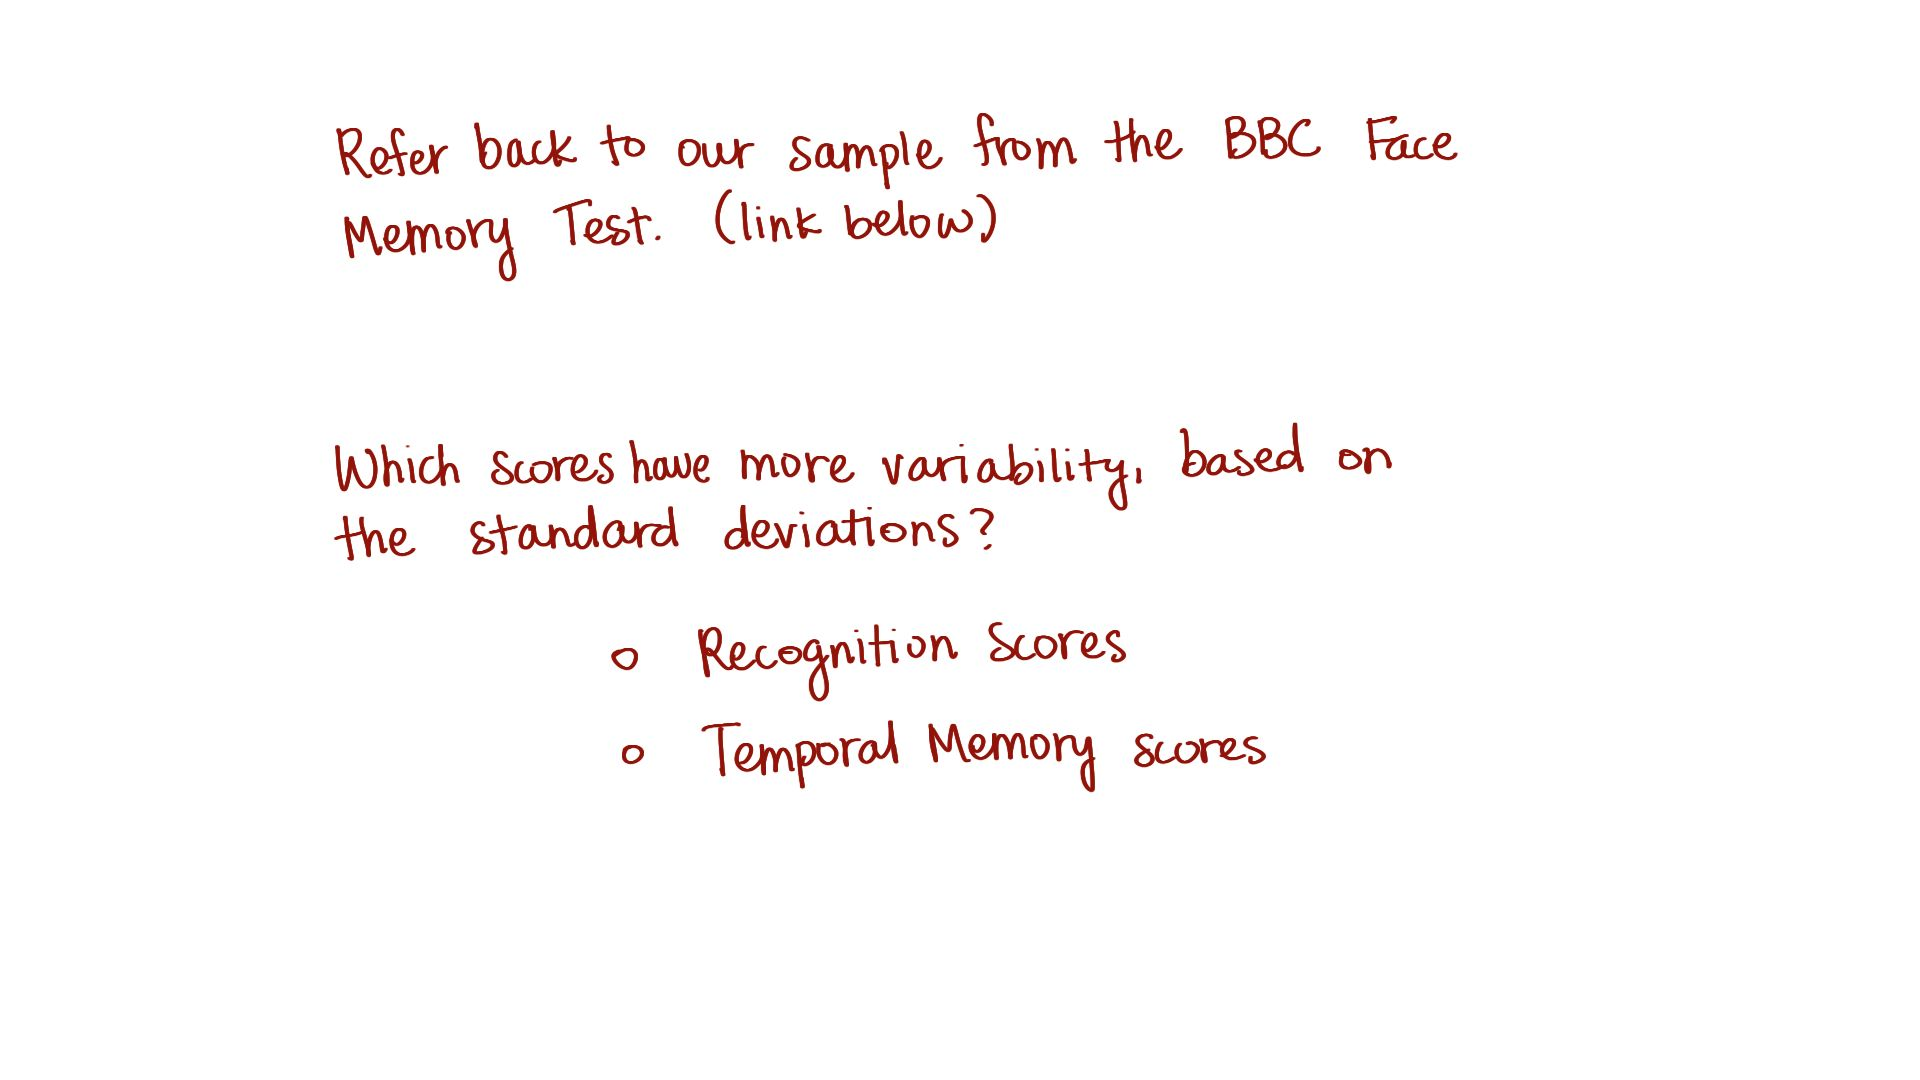 Refer back to our sample from the BBC Face
Memory Test. (link below)
Which scores have more variability, based on
the standard deviations?
o Recognition Scores
o Temporal Memory scores